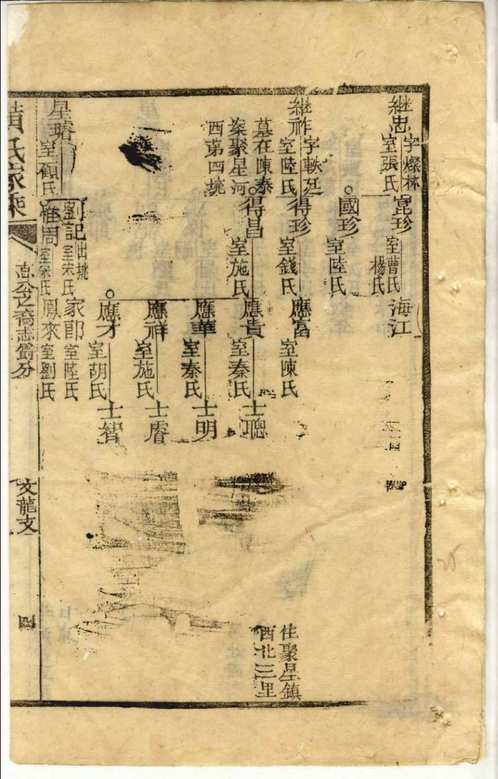 繼忠 字燦林 室張氏
寬珍 室曹氏 楊氏
海江
國珍 室陸氏
繼祚 字軼廷 室陸氏
墓在陳泰
案聚星河
西第四挑
得珍 室錢氏
應富 室陳氏
得昌 室施氏
應貴 室秦氏
士聰
應華 室秦氏
士明
應祥 室施氏
士睿
應才 室胡氏
士智
住聚星鎮
西北三里
星瑞 室顧氏
出挑 室宋氏
家郎 室陸氏
周
鳳來 室劉氏
黃氏家乘
公之裔志爵分
文龍支
四